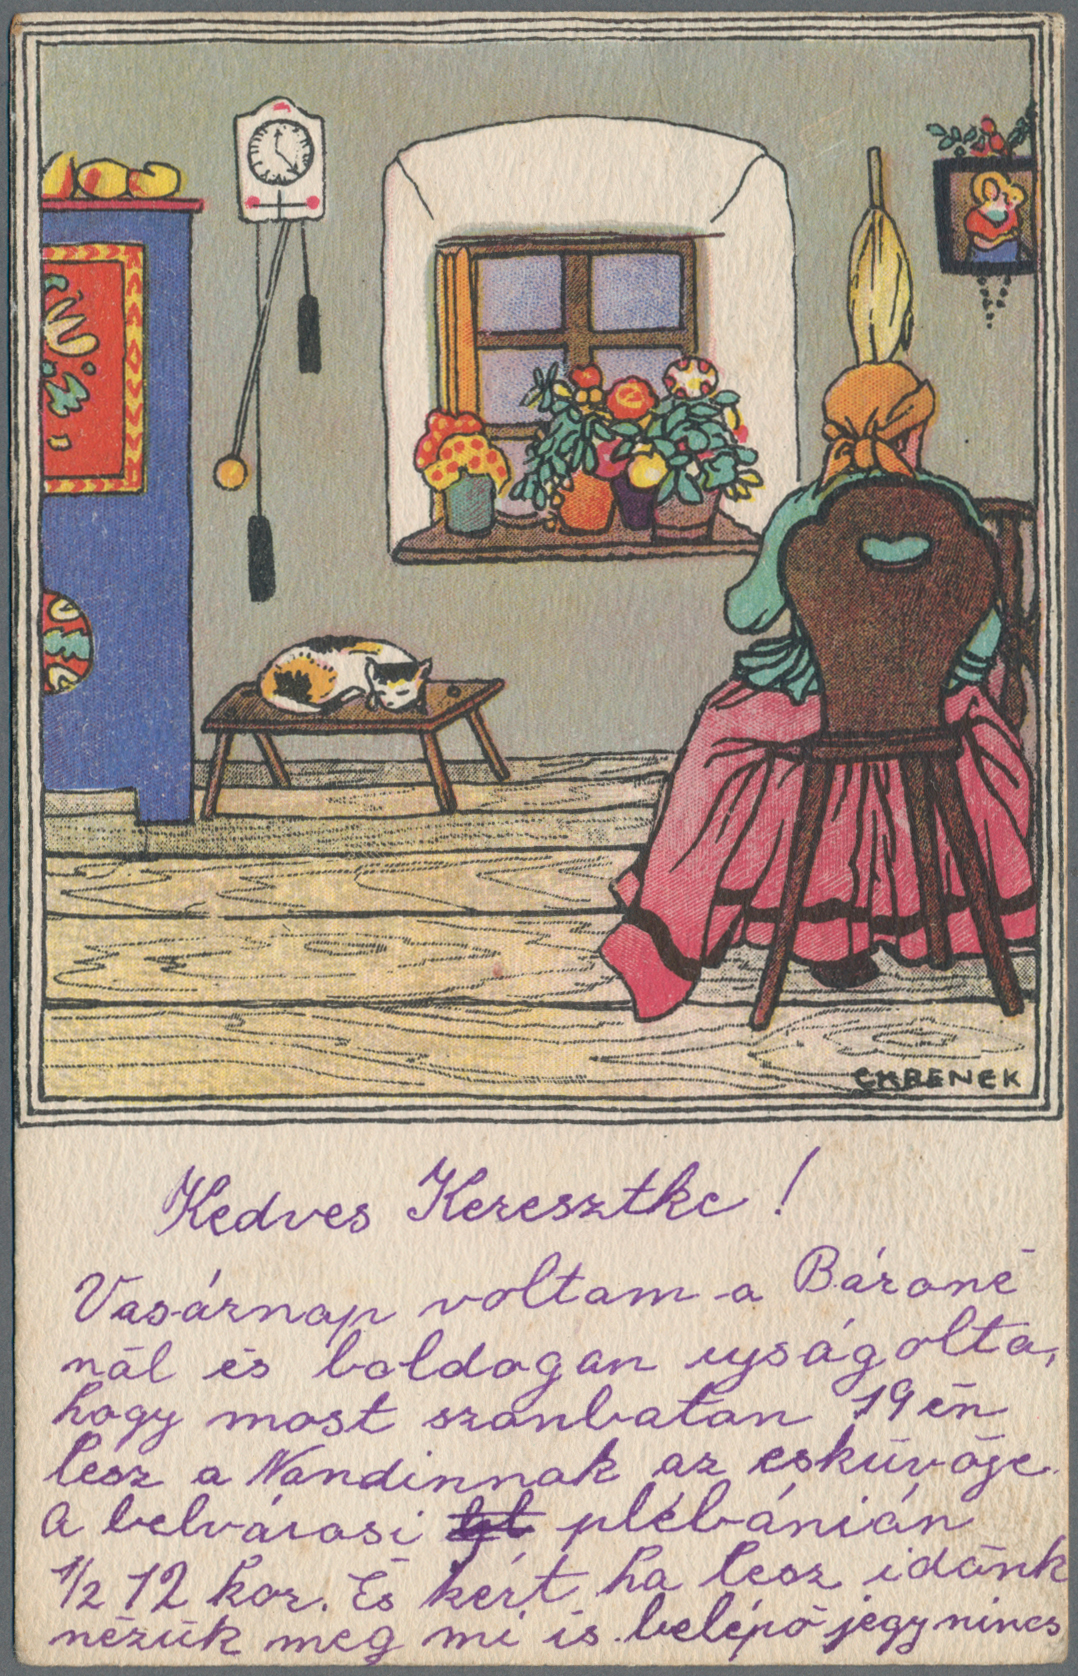 CKBENEK
Kedves Keresztke!
Vasárnap voltam a Báróné
nál és boldogan ujságolta,
hogy most szonbatan 19 én
lesz a Nandinnak az esküvője.
A belvárosi plébánián
1/2 12 kor. És kért ha lesz időnk
nézük meg mi is. belépő jegy nincs